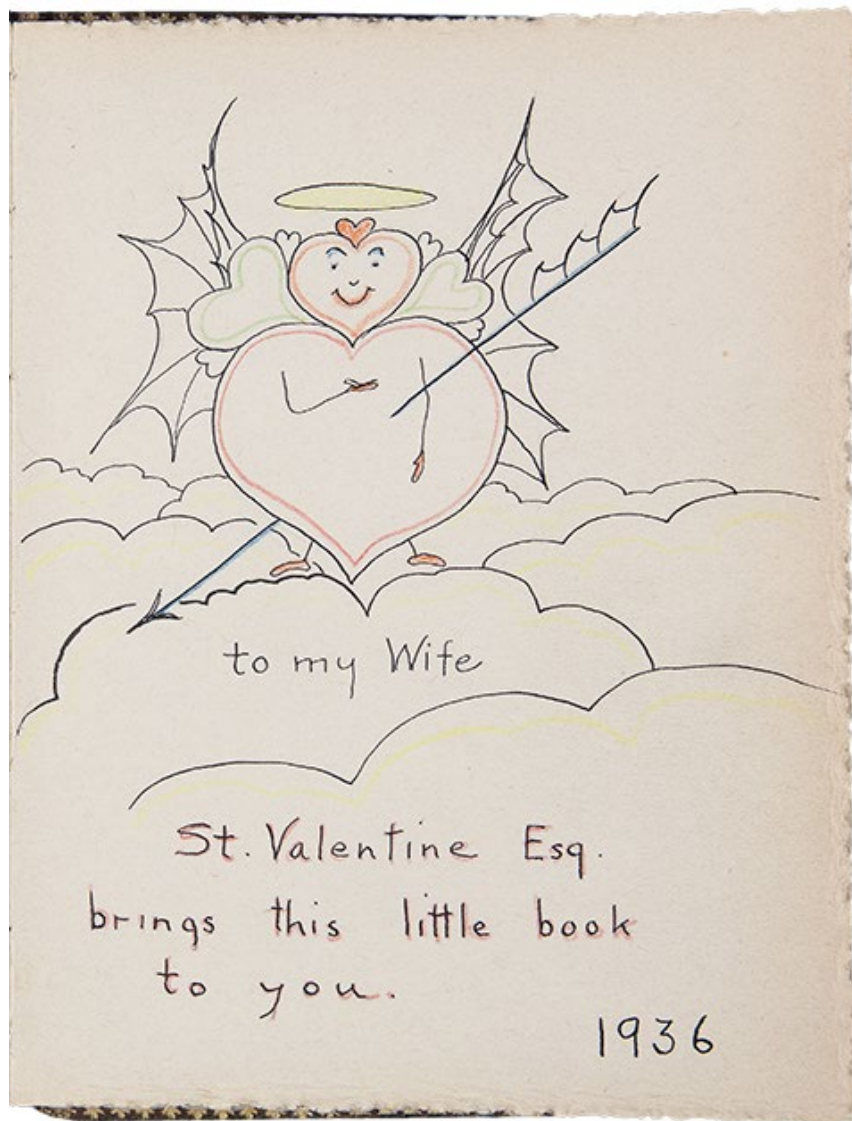 to my Wife
St. Valentine Esq.
brings this little book
to you.
1936